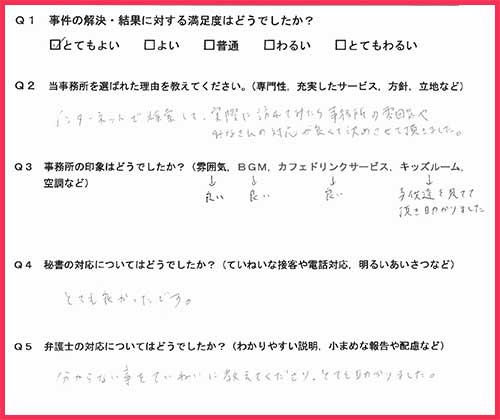 Q1 事件の解決・結果に対する満足度はどうでしたか?
☑とてもよい □よい □普通 □わるい □とてもわるい
Q2 当事務所を選ばれた理由を教えてください。(専門性，充実したサービス，方針，立地など)
インターネットで検索して、実際に訪れてみたら事務所の雰囲気や
みなさんの対応が良くて決めさせて頂きました。
Q3 事務所の印象はどうでしたか?(雰囲気，BGM，カフェドリンクサービス，キッズルーム，
空調など)
↓ ↓ ↓ ↓
良い 良い 良い 子供達を見てて
頂き助かりました
Q4 秘書の対応についてはどうでしたか?(ていねいな接客や電話対応，明るいあいさつなど)
とても良かったです。
Q5 弁護士の対応についてはどうでしたか?(わかりやすい説明，小まめな報告や配慮など)
分からない事をていねいに教えてくださり、とても助かりました。